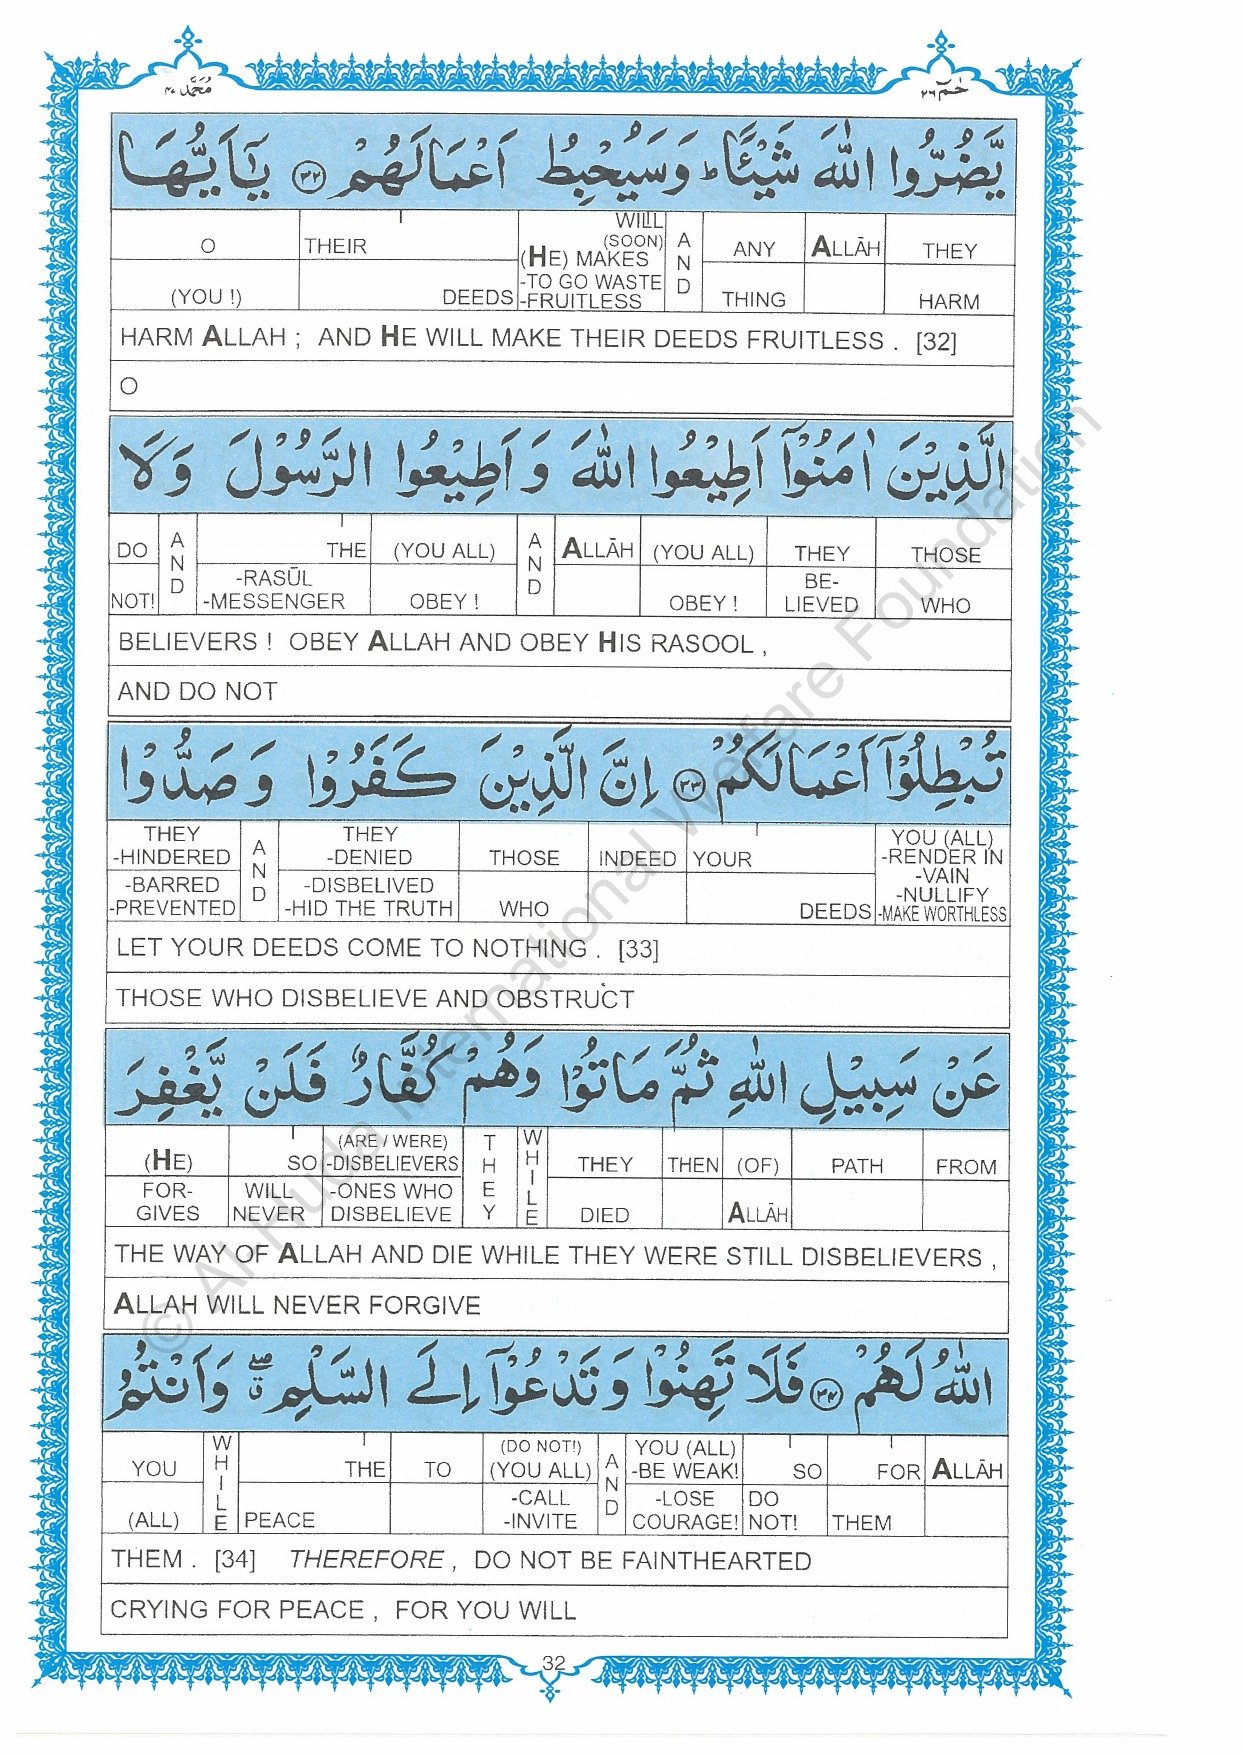 محمد ٤٧
حٰمٓ ٢٦
يَّضُرُّوا اللّٰهَ شَيْـًٔا ؕ وَسَيُحْبِطُ اَعْمَالَهُمْ ﴿۳۲﴾ يٰۤاَيُّهَا
O THEIR WILL (SOON) (HE) MAKES AND ANY ALLĀH THEY
(YOU !) DEEDS -TO GO WASTE -FRUITLESS THING HARM
HARM ALLAH ; AND HE WILL MAKE THEIR DEEDS FRUITLESS . [32]
O
الَّذِيْنَ اٰمَنُوْۤا اَطِيْعُوا اللّٰهَ وَ اَطِيْعُوا الرَّسُوْلَ وَلَا
DO AND THE (YOU ALL) AND ALLĀH (YOU ALL) THEY THOSE
NOT! -RASŪL -MESSENGER OBEY ! OBEY ! BE-LIEVED WHO
BELIEVERS ! OBEY ALLAH AND OBEY HIS RASOOL ,
AND DO NOT
تُبْطِلُوْۤا اَعْمَالَكُمْ ﴿۳۳﴾ اِنَّ الَّذِيْنَ كَفَرُوْا وَ صَدُّوْا
THEY -HINDERED AND THEY -DENIED THOSE INDEED YOUR YOU (ALL) -RENDER IN -VAIN
-BARRED -PREVENTED -DISBELIVED -HID THE TRUTH WHO DEEDS -NULLIFY -MAKE WORTHLESS
LET YOUR DEEDS COME TO NOTHING . [33]
THOSE WHO DISBELIEVE AND OBSTRUCT
عَنْ سَبِيْلِ اللّٰهِ ثُمَّ مَاتُوْا وَهُمْ كُفَّارٌ فَلَنْ يَّغْفِرَ
(HE) SO (ARE / WERE) -DISBELIEVERS THEY WHILE THEY THEN (OF) PATH FROM
FOR-GIVES WILL NEVER -ONES WHO DISBELIEVE DIED ALLĀH
THE WAY OF ALLAH AND DIE WHILE THEY WERE STILL DISBELIEVERS ,
ALLAH WILL NEVER FORGIVE
اللّٰهُ لَهُمْ ﴿۳۴﴾ فَلَا تَهِنُوْا وَ تَدْعُوْۤا اِلَى السَّلْمِ ۖۗ وَ اَنْتُمُ
YOU WHILE THE TO (DO NOT!) (YOU ALL) AND YOU (ALL) -BE WEAK! SO FOR ALLĀH
(ALL) PEACE -CALL -INVITE -LOSE COURAGE! DO NOT! THEM
THEM . [34] THEREFORE , DO NOT BE FAINTHEARTED
CRYING FOR PEACE , FOR YOU WILL
32
© Al Huda International Welfare Foundation